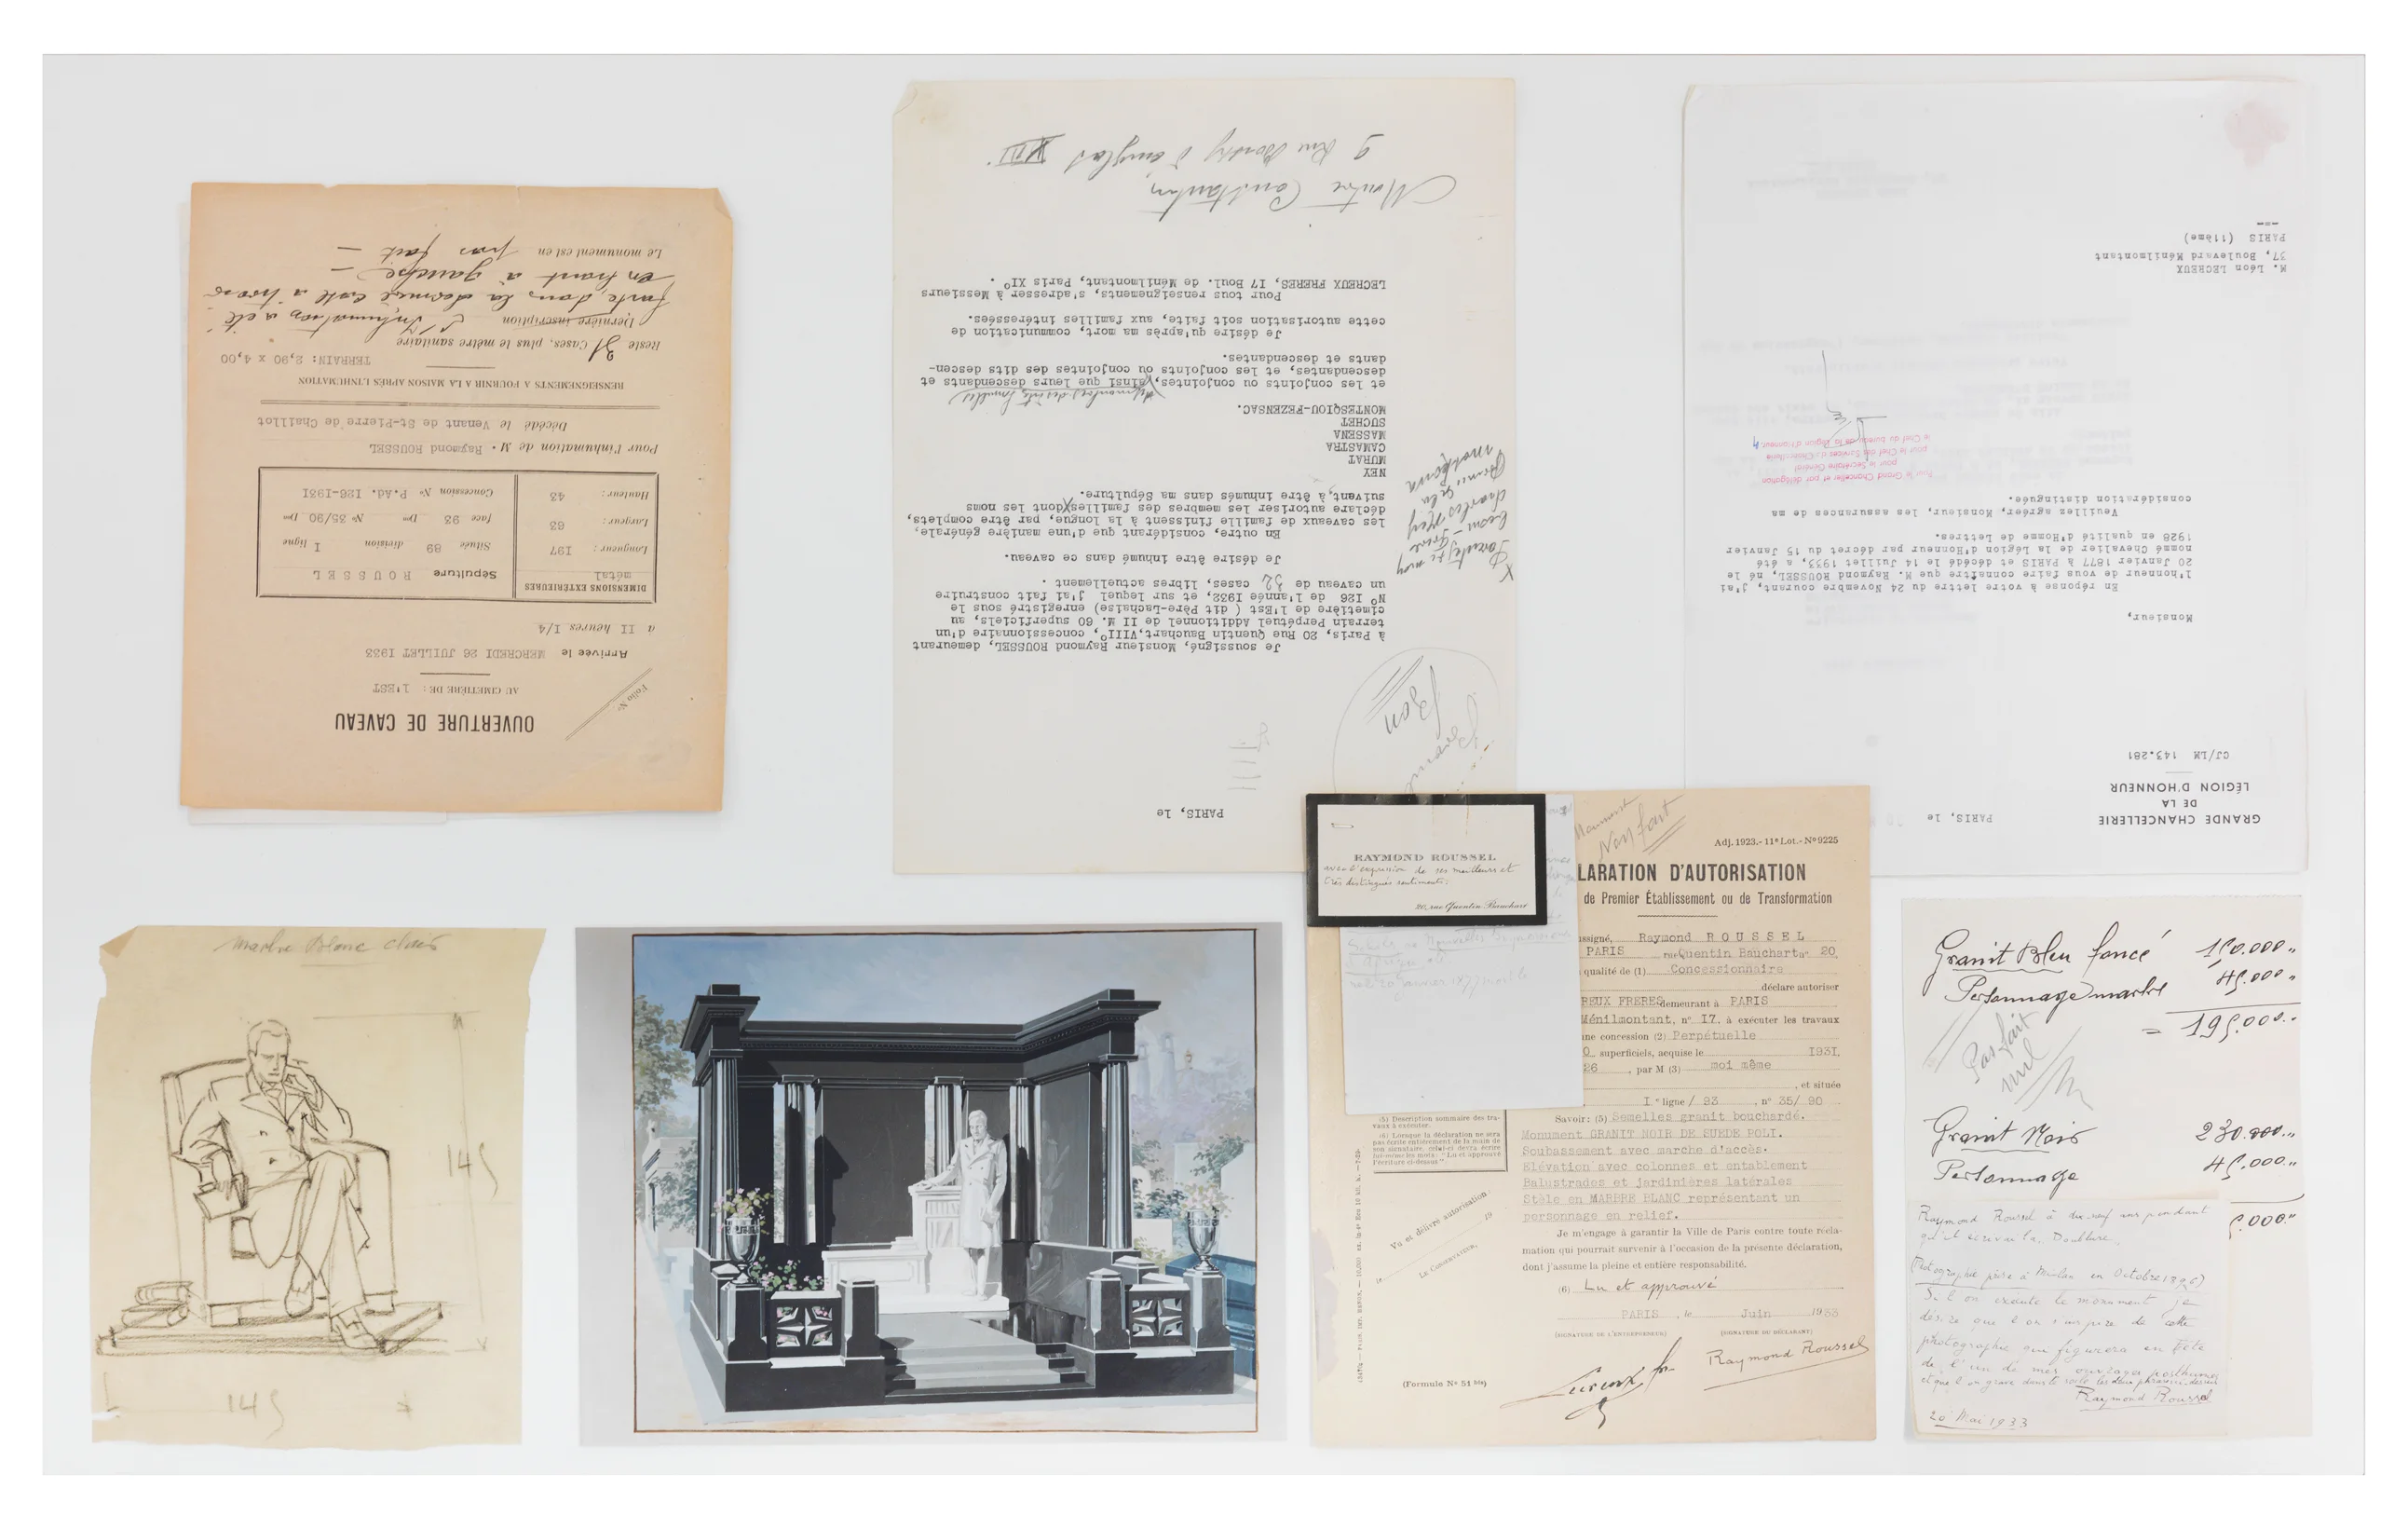 OUVERTURE DE CAVEAU
AU CIMETIÈRE DE : L'EST
Folio Nº
Arrivée le MERCREDI 26 JUILLET 1933
à II heures I/4
DIMENSIONS EXTÉRIEURES
métal
Longueur : 197
Largeur : 63
Hauteur : 43
Sépulture ROUSSEL
Située 89 division I ligne
face 93 Dᵒⁿ Nº 35/90 Dᵒⁿ
Concession Nº P.Ad. I26-I93I
Pour l'inhumation de M. Raymond ROUSSEL
Décédé le Venant de St-Pierre de Chaillot
RENSEIGNEMENTS A FOURNIR A LA MAISON APRÈS L'INHUMATION
TERRAIN: 2,90 x 4,00
Reste 31 Cases, plus le mètre sanitaire
Dernière inscription L'Inhumation a été
faite dans la dernière case à
en haut à gauche —
Le monument est en pas fait —
PARIS, le
Bon
Je soussigné, Monsieur Raymond ROUSSEL, demeurant
à Paris, 20 Rue Quentin Bauchart, VIIIº, concessionnaire d'un
terrain Perpétuel Additionnel de II M. 60 superficiels, au
cimetière de l'Est ( dit Père-Lachaise) enregistré sous le
Nº I26 de l'année I932, et sur lequel j'ai fait construire
un caveau de 32 cases, libres actuellement .
Je désire être inhumé dans ce caveau.
En outre, considérant que d'une manière générale,
les caveaux de famille finissent à la longue, par être complets,
déclare autoriser les membres des familles X dont les noms
suivent, à être inhumés dans ma Sépulture.
X Parentes de moi
Charles Ney
NEY
MURAT
CAMASTRA
MASSENA
SUCHET
MONTESQIOU-FEZENSAC.
membres desdites familles
et les conjoints ou conjointes, ainsi que leurs descendants et
descendantes, et les conjoints ou conjointes des dits descen-
dants et descendantes.
Je désire qu'après ma mort, communication de
cette autorisation soit faite, aux familles intéressées.
Pour tous renseignements, s'adresser à Messieurs
LECREUX FRERES, I7 Boul. de Ménilmontant, Paris XIº .
Maître Constantin
9 Rue Boissy d'Anglas VIII
GRANDE CHANCELLERIE
DE LA
LÉGION D'HONNEUR
PARIS, le
CJ/LM 143.281
Monsieur,
En réponse à votre lettre du 24 Novembre courant, j'ai
l'honneur de vous faire connaître que M. Raymond ROUSSEL, né le
20 Janvier 1877 à PARIS et décédé le 14 Juillet 1933, a été
nommé Chevalier de la Légion d'Honneur par décret du 15 Janvier
1928 en qualité d'Homme de Lettres.
Veuillez agréer, Monsieur, les assurances de ma
considération distinguée.
Pour le Grand Chancelier et par délégation
pour le Secrétaire Général
pour le Chef des Services de la Chancellerie
le Chef du bureau de la Légion d'Honneur.
M. Léon LECREUX
37, Boulevard Ménilmontant
PARIS (11ème)
-=-
marbre Blanc clair
145
145
RAYMOND ROUSSEL
avec l'expression de ses meilleurs et
très distingués sentiments.
20, rue Quentin Bauchart
Nouvelles Impressions
d'Afrique
né 20 janvier 1877
Monument
Non fait
Adj. 1923.- 11ᵉ Lot.- Nº 9225
LARATION D'AUTORISATION
de Premier Établissement ou de Transformation
ssigné, Raymond ROUSSEL
PARIS rue Quentin Bauchart nº 20,
qualité de (1) Concessionnaire
déclare autoriser
REUX FRERES demeurant à PARIS
Ménilmontant, nº I7, à exécuter les travaux
une concession (2) Perpétuelle
0 superficiels, acquise le I93I,
26 , par M (3) moi même
, et située
I º ligne / 93 , nº 35/ 90
Savoir: (5) Semelles granit bouchardé.
Monument GRANIT NOIR DE SUEDE POLI.
Soubassement avec marche d'accès.
Elévation avec colonnes et entablement
Balustrades et jardinières latérales
Stèle en MARBRE BLANC représentant un
personnage en relief.
(5) Description sommaire des tra-
vaux à exécuter.
(6) Lorsque la déclaration ne sera
pas écrite entièrement de la main de
son signataire, celui-ci devra écrire
lui-même les mots: " Lu et approuvé
l'écriture ci-dessus ".
Je m'engage à garantir la Ville de Paris contre toute récla-
mation qui pourrait survenir à l'occasion de la présente déclaration,
dont j'assume la pleine et entière responsabilité.
(6) Lu et approuvé
Vu et délivré autorisation
le 19
LE CONSERVATEUR,
PARIS , le Juin 1933
(SIGNATURE DE L'ENTREPRENEUR)
(SIGNATURE DU DÉCLARANT)
Raymond Roussel
(Formule Nº 51 bis)
Granit Bleu foncé 150.000"
Personnage marbre 45.000"
= 195.000"
Pas fait
Granit Noir 230.000"
Personnage 45.000"
5.000"
Raymond Roussel à dix-neuf ans pendant
qu'il écrivait la "Doublure"
(Photographie prise à Milan en Octobre 1896)
Si l'on exécute le monument je
désire que l'on s'inspire de cette
photographie qui figurera en tête
de l'un de mes ouvrages posthumes
et que l'on grave dans le socle les deux phrases ci-dessus
Raymond Roussel
20 Mai 1933